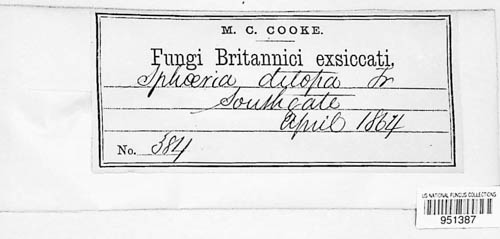 M. C. COOKE.
Fungi Britannici exsiccati,
Sphœria ditopa Fr
Southgate
April 1864
No. 384
US NATIONAL FUNGUS COLLECTIONS
951387